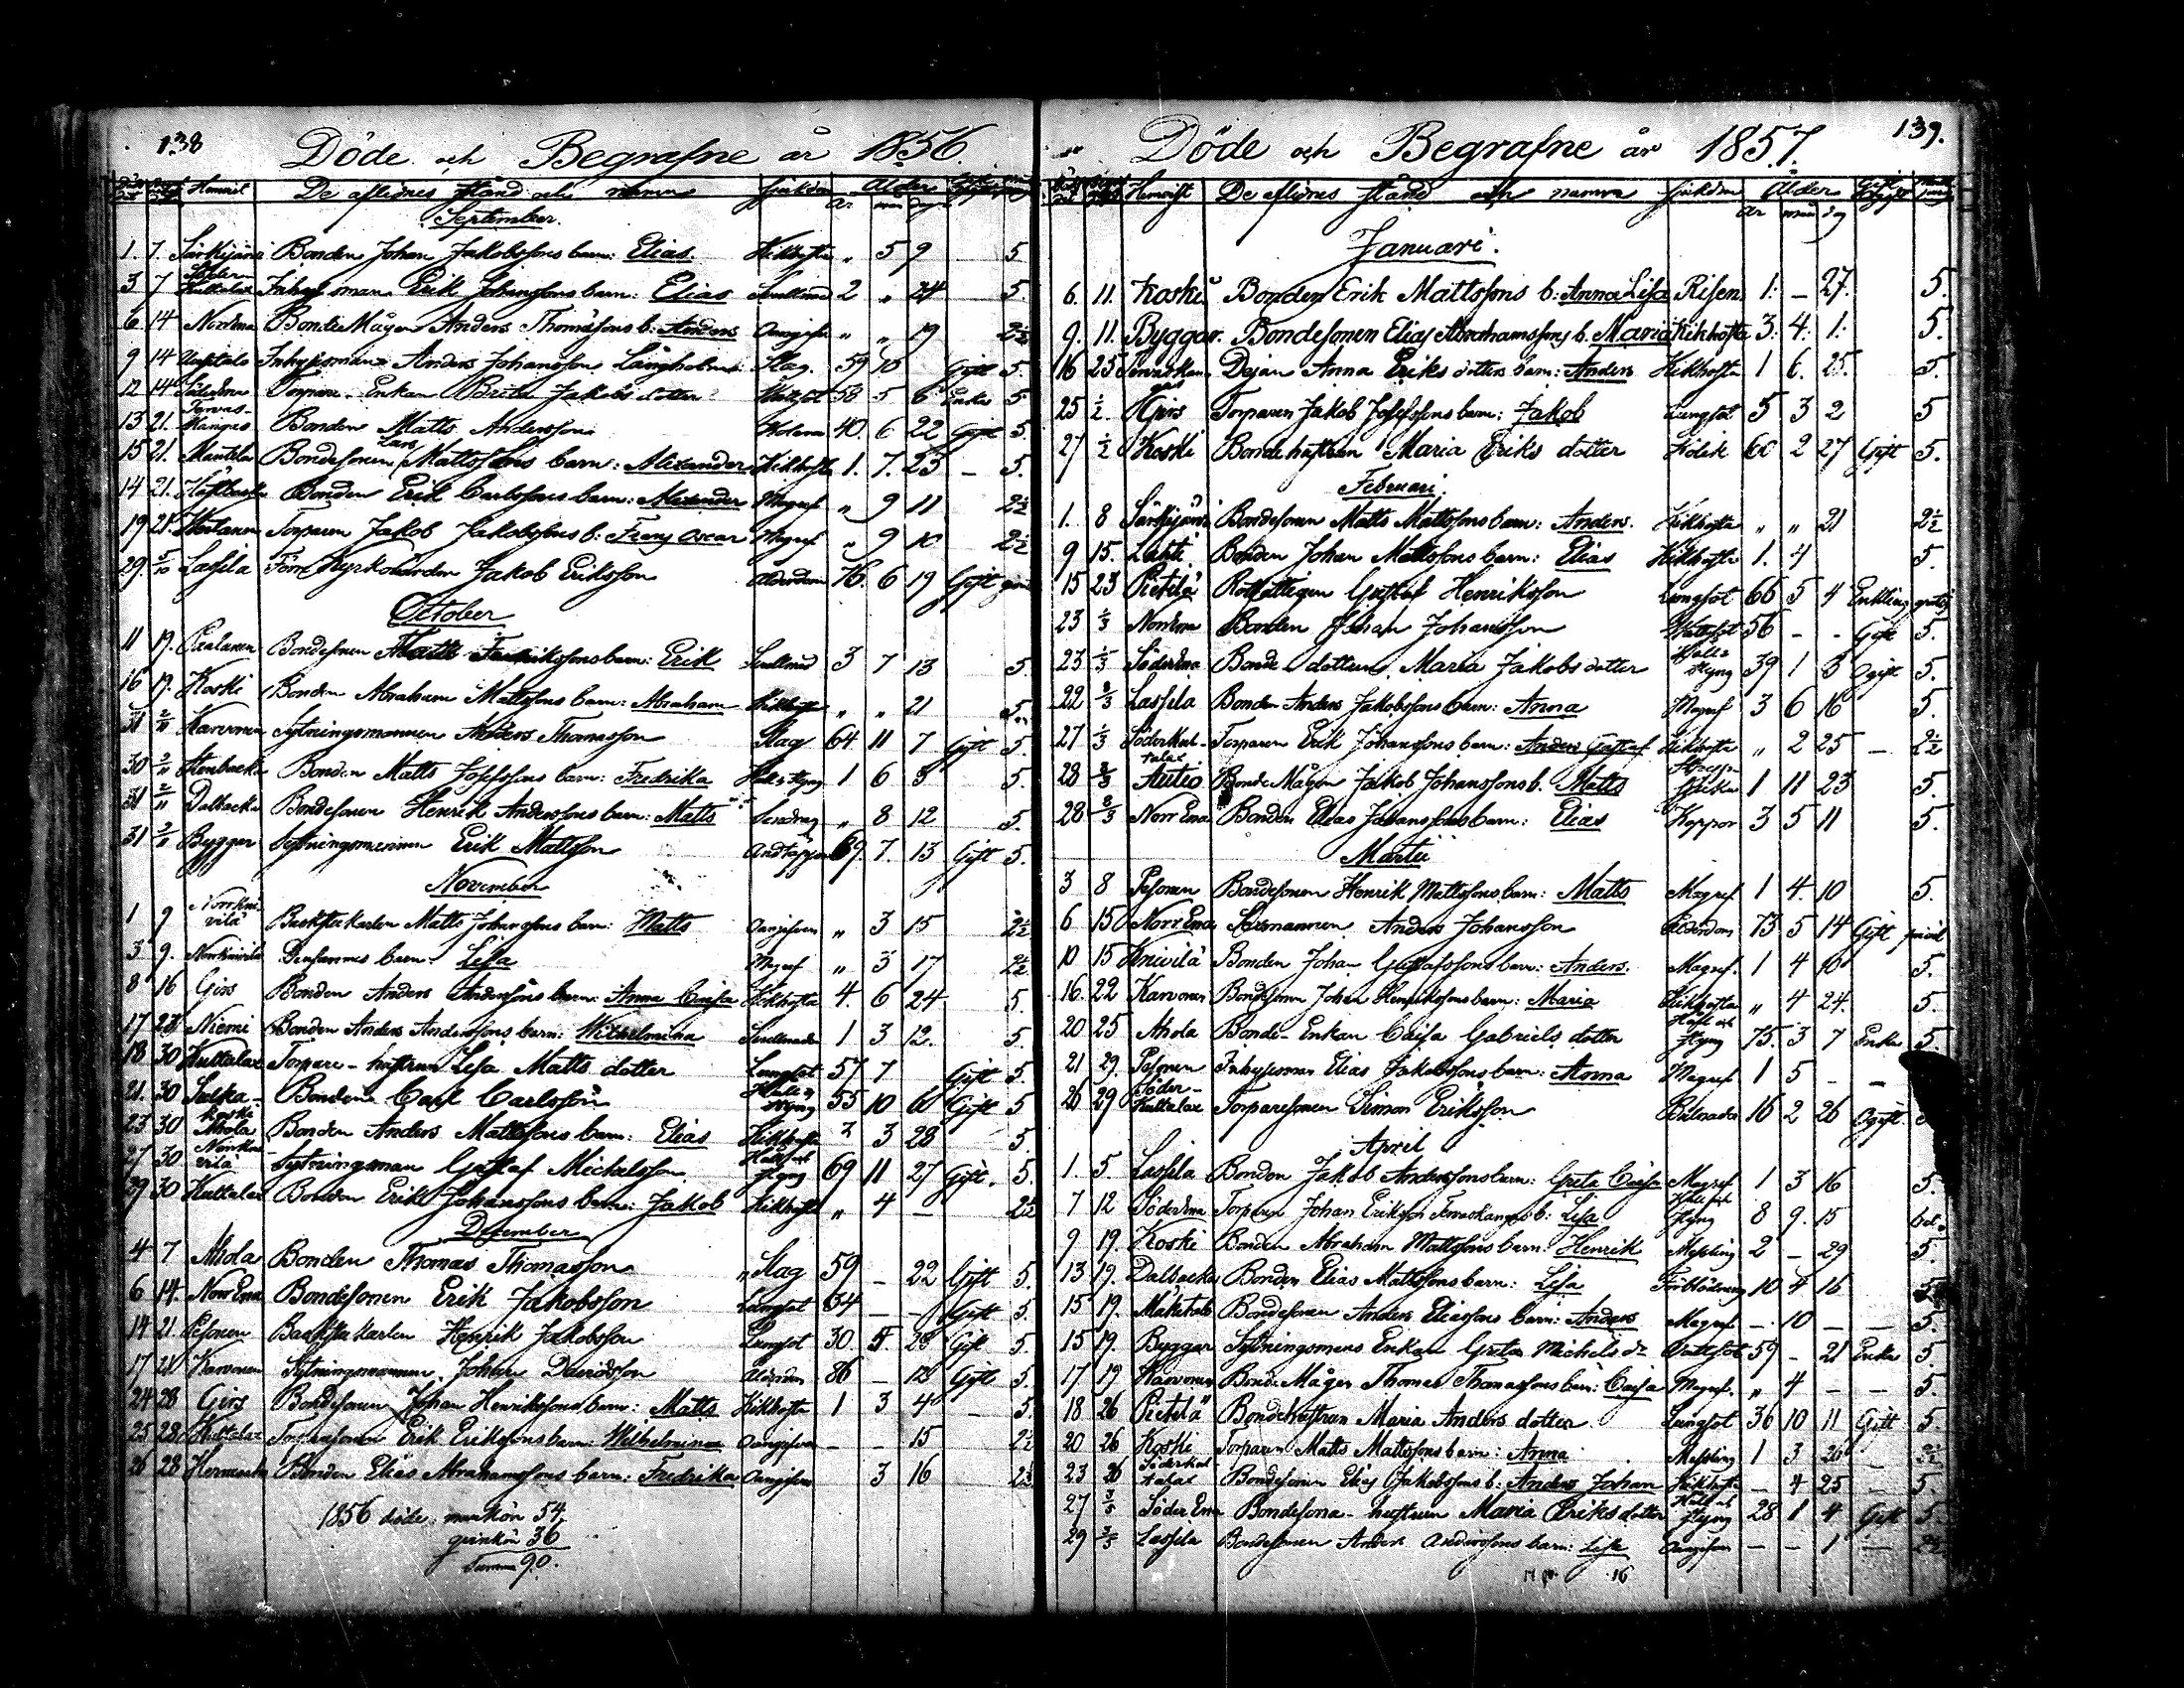 138
Döde och Begrafne år 1856.
Hemvist De aflidnes stånd och namn Sjukdom Ålder
år mån dag
September.
1. 7. Särkijärvi Bonden Johan Jakobssons barn: Elias. Kikhosta „ 5 9 5
3 7 Söder Kuttalax Inhysesman Erik Johanssons barn: Elias 2 „ 24 5.
6 14 Norrena Bonde Mågen Anders Thomassons b: Anders Oangifven „ „ 19 2½
9 14 Inhysesman Anders Johansson Långholmen Slag. 59 10 Gift 5.
12 14 Torpare-Enkan Brita Jakobsdotter Wattsot 58 5 6 Enka 5
13 21. Tervas-Kangas Bonden Matts Andersson 40. 6 22 Gift 5.
15 21. Mantela Bondesonen Lars Mattssons barn: Alexander Kikhosta 1. 7. 25 – 5.
14 21. Bonden Erik Carlssons barn: Alexander Magref „ 9 11 2½
19 21. Torparen Jakob Jakobssons b: Frans Oscar Magref „ 9 10 2½
29. 5/10 Lassila Förre Kyrkovärden Jakob Eriksson Ålderdom 76. 6 19 Gift
October
11 19. Bondesonen Matts Fredrikssons barn: Erik 3 7 13 5.
16 19. Koski Bonden Abraham Mattssons barn: Abraham Kikhosta „ „ 21 5.
31 2/11 Karvonen Sytningsmannen Anders Thomasson Slag 64 11 7 Gift 5.
30 2/11 Stenbacka Bonden Matts Josefssons barn: Fredrika Håll & styng 1 6 8 5.
31 2/11 Dalbacka Bondesonen Henrik Anderssons barn: Matts „ 8 12 5.
31 2/11 Bygger Sytningsmannen Erik Mattsson Andtäppa 69. 7. 13 Gift 5.
November
1 9 Norrknivilä Backstukarlen Matts Johanssons barn: Matts Oangifven „ 3 15 2½
3 9. Norrknivilä Densammes barn: Lisa Magref „ 3 17 2½
8 16 Girs Bonden Anders Anderssons barn: Anna Caisa Kikhosta 4. 6 24 5.
17 23 Niemi Bonden Anders Anderssons barn: Wilhelmina 1 3 12. 5.
18 30 Kuttalax Torpare-hustrun Lisa Mattsdotter Lungsot 57 7 Gift 5.
21. 30 Salka-koski Bonden Carl Carlsson Håll & styng 55 10 6 Gift 5
23 30 Ahola Bonden Anders Mattssons barn: Elias Kikhosta 2 3 28 5.
27 30 Norrknivilä Sytningsman Gustaf Michelsson Håll och styng 69 11 27 Gift. 5.
29 30 Kuttalax Bonden Erik Johanssons barn: Jakob Kikhosta „ 4 – 2½
December
4 7 Ahola Bonden Thomas Thomasson Slag 59 – 22 Gift 5.
6 14. Norr Ena Bondesonen Erik Jakobsson Lungsot 34 – – Gift 5.
14 21. Pesonen Backstukarlen Henrik Jakobsson Lungsot 30 5 28 Gift 5.
17 21 Karvonen Sytningsmannen Johan Davidsson Ålderdom 86 – 12 Gift 5.
24 28 Girs Bondesonen Johan Henrikssons barn: Matts Kikhosta 1 3 4 – 5.
25 28 Kuttalax Torparesonen Erik Erikssons barn: Wilhelmina Oangifven – – 15 2½
26 28 Bonden Elias Abrahamssons barn: Fredrika Oangifven 3 16 2½
1856 döde: mankön 54
qvinkön 36
Summa 90.
139.
Döde och Begrafne år 1857.
Hemvist De aflidnes stånd och namn Sjukdom Ålder
år mån dag
Januari.
6. 11. Koski Bonden Erik Mattssons b: Anna Lisa Risen 1: – 27. 5.
9. 11. Byggar. Bondesonen Elias Abrahamssons b. Maria Kikhosta 3: 4: 1: 5.
16 25 Tervaskangas Dejan Anna Eriksdotters barn: Anders Kikhosta 1 6. 25. 5.
25 1/2 Girs Torparen Jakob Josefssons barn: Jakob Lungsot 5 3 2 5
27 1/2 Koski Bondehustrun Maria Eriksdotter Kolik 60 2 27 Gift 5.
Februari.
1. 8 Särkijärvi Bondesonen Matts Mattssons barn: Anders. Kikhosta „ „ 21 2½
9 15. Lahti Bonden Johan Mattssons barn: Elias Kikhosta 1. 4 5.
15 23 Pietilä Rothattigen Gustaf Henriksson Lungsot 66 5 4 Enkling gratis
23 1/3 Norrena Bonden Johan Johansson Wattsot 56 – – Gift 5.
23 1/3 Söderena Bonde dottren Maria Jakobsdotter Håll & styng 39 1 3 Ogift 5.
22 8/3 Lassila Bonden Anders Jakobssons barn: Anna Magref 3 6 16 5.
27 1/3 Söderkuttalax Torparen Erik Johanssons barn: Anders Gustaf Kikhosta „ 2 25 – 2½
28 8/3 Autio Bonde Mågen Jakob Johanssons b. Matts 1 11 23 5.
28 8/3 Norr Ena Bonden Elias Johanssons barn: Elias Koppor 3 5 11 5.
Martii
3 8 Pesonen Bondesonen Henrik Mattssons barn: Matts Magref 1 4. 10 5.
6 15 Norr Ena Sexmannen Anders Johansson Ålderdom 73 5 14 Gift
10 15 Knivilä Bonden Johan Gustafssons barn: Anders. Magref. 1 4 10 5.
16. 22 Karvonen Bondesonen Johan Henrikssons barn: Maria Kikhosta „ 4 24. 5.
20 25 Ahola Bonde-Enkan Caisa Gabrielsdotter Håll och styng 75. 3 7 Enka 5.
21 29. Pesonen Inhysesman Elias Jakobssons barn: Anna Magref 1 5 – –
26 29 Söder-Kuttalax Torparesonen Simon Eriksson 16 2 26 Ogift.
April
1. 5. Lassila Bonden Jakob Anderssons barn: Greta Caisa Magref 1 3 16 5.
7 12 Söderena Torparen Johan Eriksson Tervaskangas b: Lisa Håll och styng 8 9. 15
9 19. Koski Bonden Abraham Mattssons barn: Henrik Messling 2 – 29 5.
13 19. Dalbacka Bonden Elias Mattssons barn: Lisa Förblödning 10 4 16
15 19. Bondesonen Anders Eliassons barn: Anders Magref – 10 – – 5.
15 19. Byggar Sytningsmans Enkan Greta Michelsdr Wattsot 59 – 21 Enka 5.
17 19 Karvonen Bonde Mågen Thomas Thomassons barn: Caisa Magref. „ 4 – – 5.
18 26 Pietilä Bondehustrun Maria Andersdotter Lungsot 36 10 11 Gift 5.
20 26 Koski Torparen Matts Mattssons barn: Anna Messling 1 3 26 – 2½
23 26 Söderkuttalax Bondesonen Elias Jakobssons b: Anders Johan Kikhosta – 4 25 – 5.
27 3/5 Söder Ena Bondesona-hustrun Maria Eriksdotter Håll och styng 28 1 4 Gift 5.
29 3/5 Lassila Bondesonen Anders Anderssons barn: Lisa Oangifven – – 1 – 2½
16